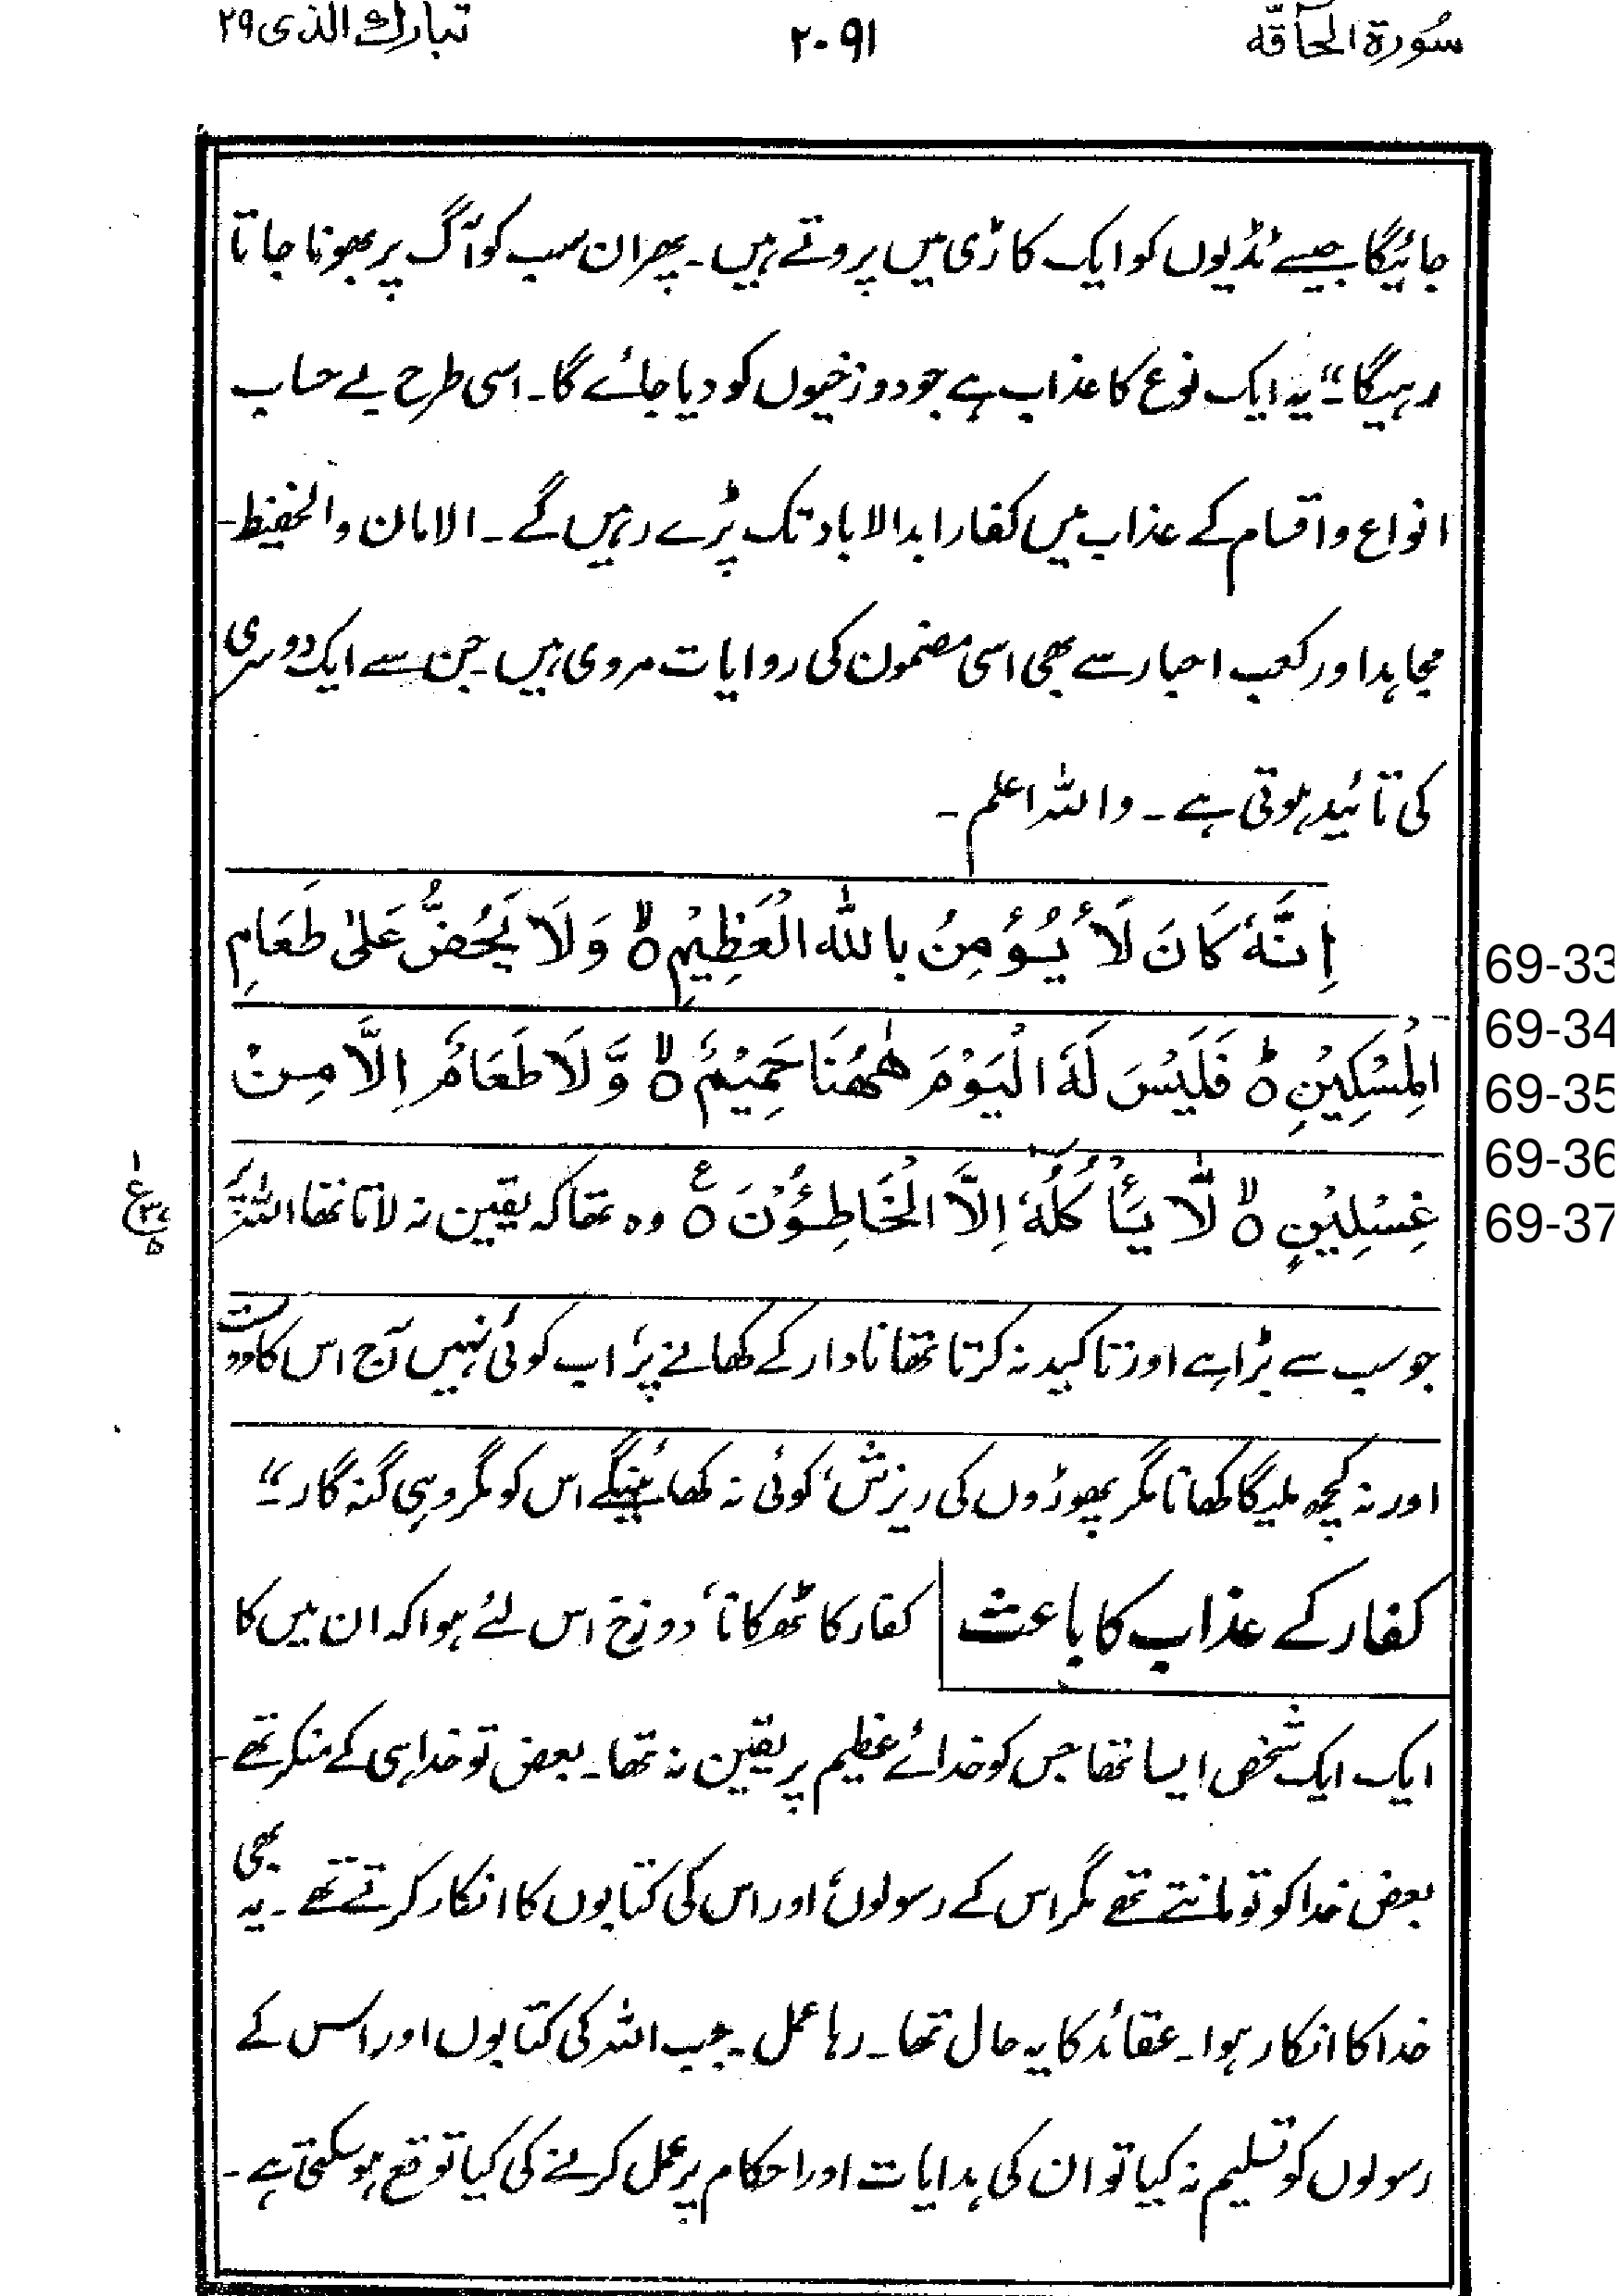 سُورۃ الحآقّہ
۲۰۹۱
تبارک الذی ۲۹
جائیگا جیسے ٹڈیوں کو ایک کاڑی میں پروتے ہیں۔ پھر ان سب کو آگ پر بھونا جاتا
رہیگا"۔ یہ ایک نوع کا عذاب ہے جو دوزخیوں کو دیا جائے گا۔ اسی طرح بے حساب
انواع و اقسام کے عذاب میں کفار ابدالاباد تک پڑے رہیں گے۔ الامان والحفیظ۔
مجاہد اور کعب احبار سے بھی اسی مضمون کی روایات مروی ہیں۔ جن سے ایک دوسری
کی تائید ہوتی ہے۔ واللہ اعلم۔
اِنَّہٗ کَانَ لَا یُؤْمِنُ بِاللّٰہِ الْعَظِیْمِ ۙ وَلَا یَحُضُّ عَلٰی طَعَامِ
69-33
الْمِسْکِیْنِ ؕ فَلَیْسَ لَہُ الْیَوْمَ ھٰھُنَا حَمِیْمٌ ۙ وَّلَا طَعَامٌ اِلَّا مِنْ
69-34
69-35
غِسْلِیْنٍ ۙ لَّا یَاْکُلُہٗٓ اِلَّا الْخَاطِـُٔوْنَ ۧ وہ تھا کہ یقین نہ لاتا تھا اللہ پر
69-36
69-37
ع
جو سب سے بڑا ہے اور تاکید نہ کرتا تھا نادار کے کھانے پر، اب کوئی نہیں آج اس کا دوست
اور نہ کچھ ملیگا کھانا مگر پھوڑوں کی ریزش، کوئی نہ کھائینگے اس کو مگر وہی گنہ گار"۔
کفار کے عذاب کا باعث
کفار کا ٹھکانا، دوزخ اس لئے ہوا کہ ان میں کا
ایک ایک شخص ایسا تھا جس کو خدائے عظیم پر یقین نہ تھا۔ بعض تو خدا ہی کے منکر تھے۔
بعض خدا کو تو مانتے تھے مگر اس کے رسولوں اور اس کی کتابوں کا انکار کرتے تھے۔ یہ بھی
خدا کا انکار ہوا۔ عقائد کا یہ حال تھا۔ رہا عمل۔ جب اللہ کی کتابوں اور اس کے
رسولوں کو تسلیم نہ کیا تو ان کی ہدایات اور احکام پر عمل کرنے کی کیا توقع ہو سکتی ہے۔